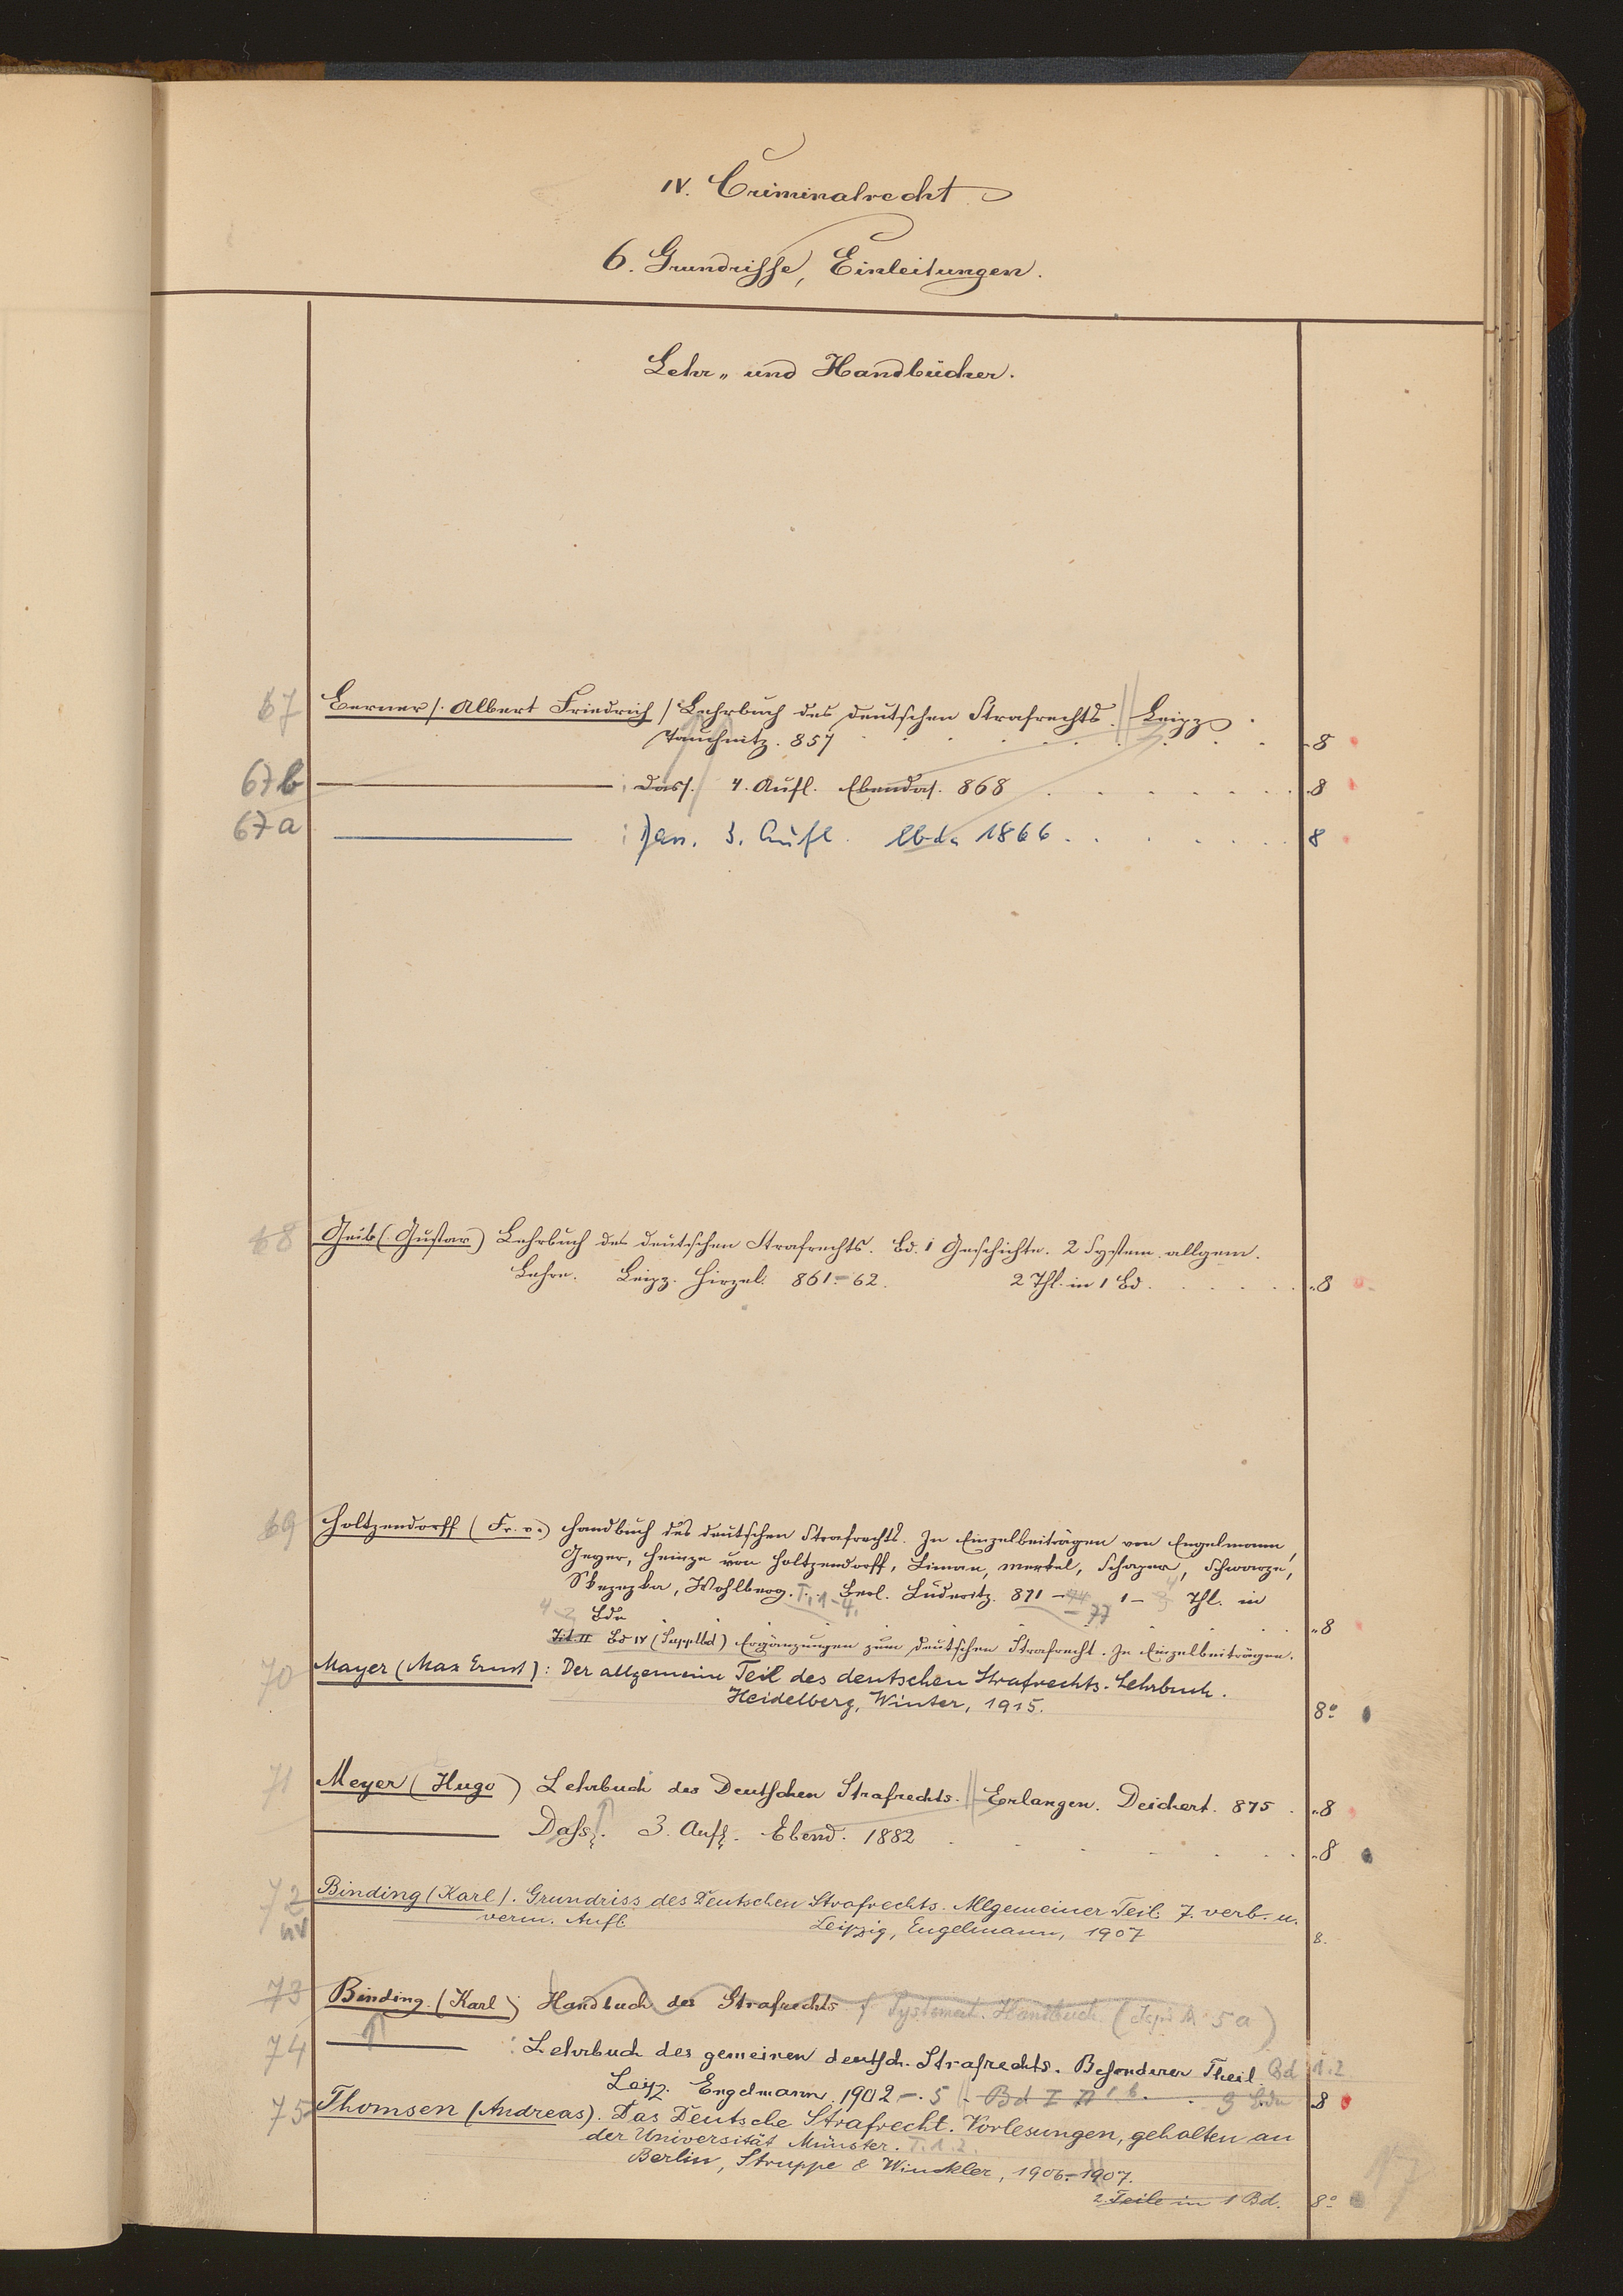 IV. Criminalrecht
6. Grundrisse, Einleitungen.
Lehr- und Handbücher.
67 Berner /. Albert Friedrich / Lehrbuch des deutschen Strafrechts. Leipz.
Tauchnitz. 857 8
67b : Dass. 4. Aufl. Ebendas. 868 8
67a : Dass. 3. Aufl. Ebda 1866 8
68 Geib (Gustav) Lehrbuch des deutschen Strafrechts. Bd. 1 Geschichte. 2 System allgem.
Lehre. Leipz. Hirzel. 861-62. 2 Thl. in 1 Bd. 8
69 Holtzendorff (Fr. v.) Handbuch des deutschen Strafrechts. In Einzelbeiträgen von Engelmann,
Geyer, Heinze von Holtzendorff, Liman, Merkel, Schaper, Schwarze,
Skezezka, Wohlberg. T. 1-4. Berl. Lüderitz. 871-74 -77 1-3 4 Thl. in
4 Bde 8
Bd IV (Supplbd) Ergänzungen zum deutschen Strafrecht. In Einzelbeiträgen.
70 Mayer (Max Ernst): Der allgemeine Teil des deutschen Strafrechts. Lehrbuch.
Heidelberg, Winter, 1915. 8º
71 Meyer (Hugo) Lehrbuch des Deutschen Strafrechts. Erlangen. Deichert. 875. 8
Dass. 3. Aufl. Ebend. 1882 8
72 Binding (Karl). Grundriss des Deutschen Strafrechts. Allgemeiner Teil. 7. verb. u.
verm. Aufl. Leipzig, Engelmann, 1907 8.
73 Binding. (Karl) Handbuch des Strafrechts f Systemat. Handbuch 5a)
74 : Lehrbuch des gemeinen deutsch. Strafrechts. Besonderer Theil. Bd 1.2
Leipz. Engelmann. 1902-.5 Bd I II 3 Bde 8
75 Thomsen (Andreas). Das Deutsche Strafrecht. Vorlesungen, gehalten an
der Universität Münster. T. 1.2.
Berlin, Struppe & Winckler, 1906-1907.
2 Teile in 1 Bd. 8º